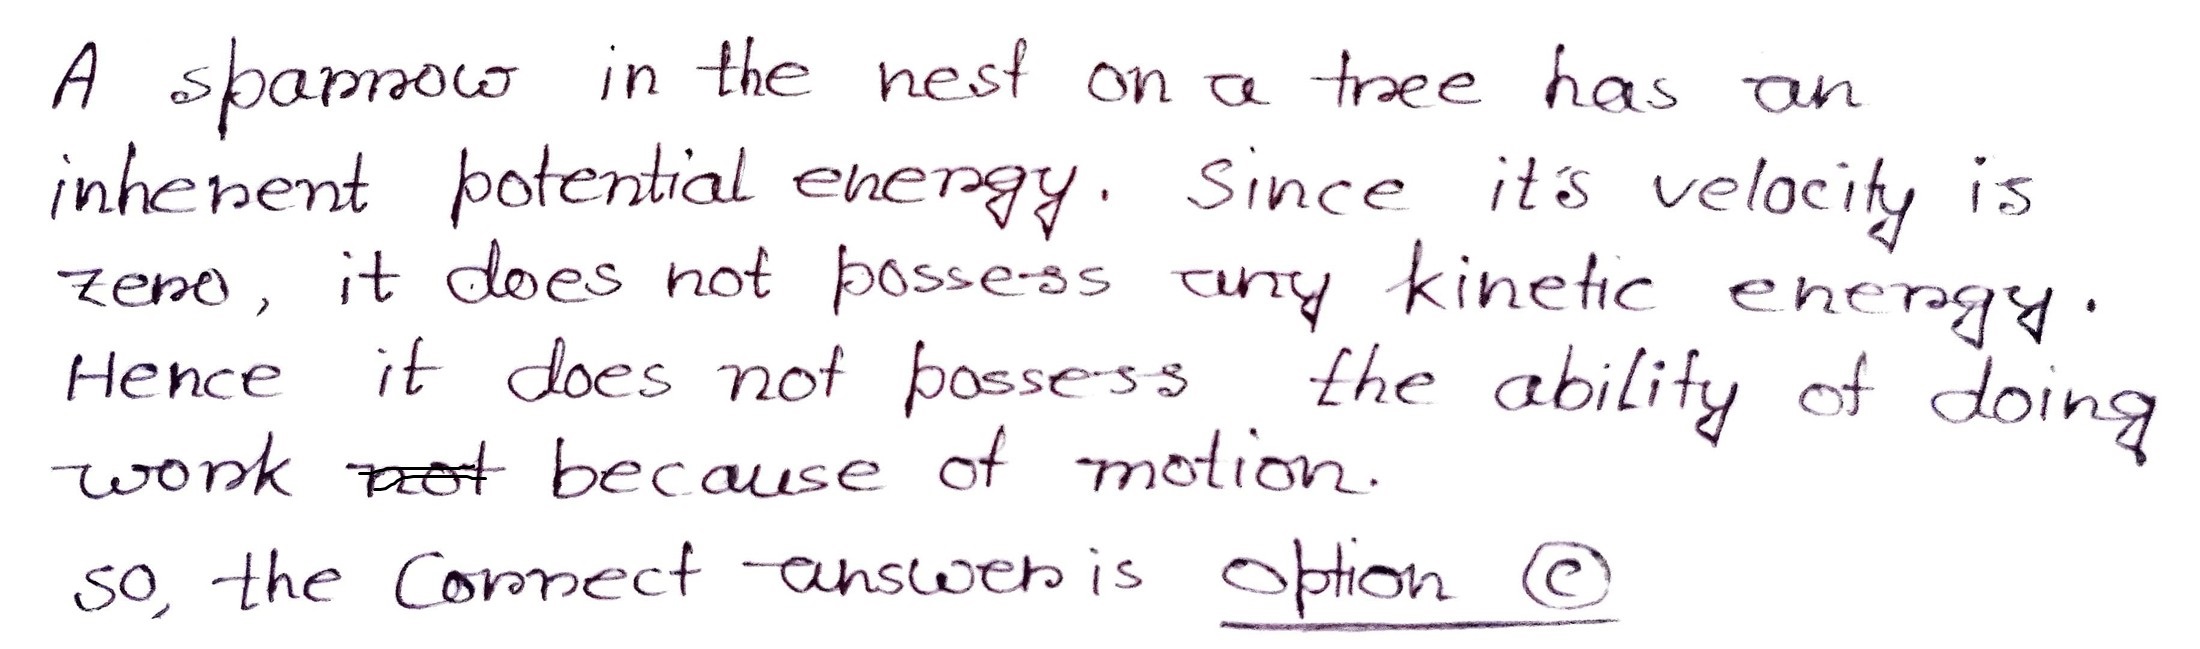 A sparrow in the nest on a tree has an
inherent potential energy. Since it's velocity is
zero, it does not possess any kinetic energy.
Hence it does not possess the ability of doing
work not because of motion.
so, the Correct answer is option ©